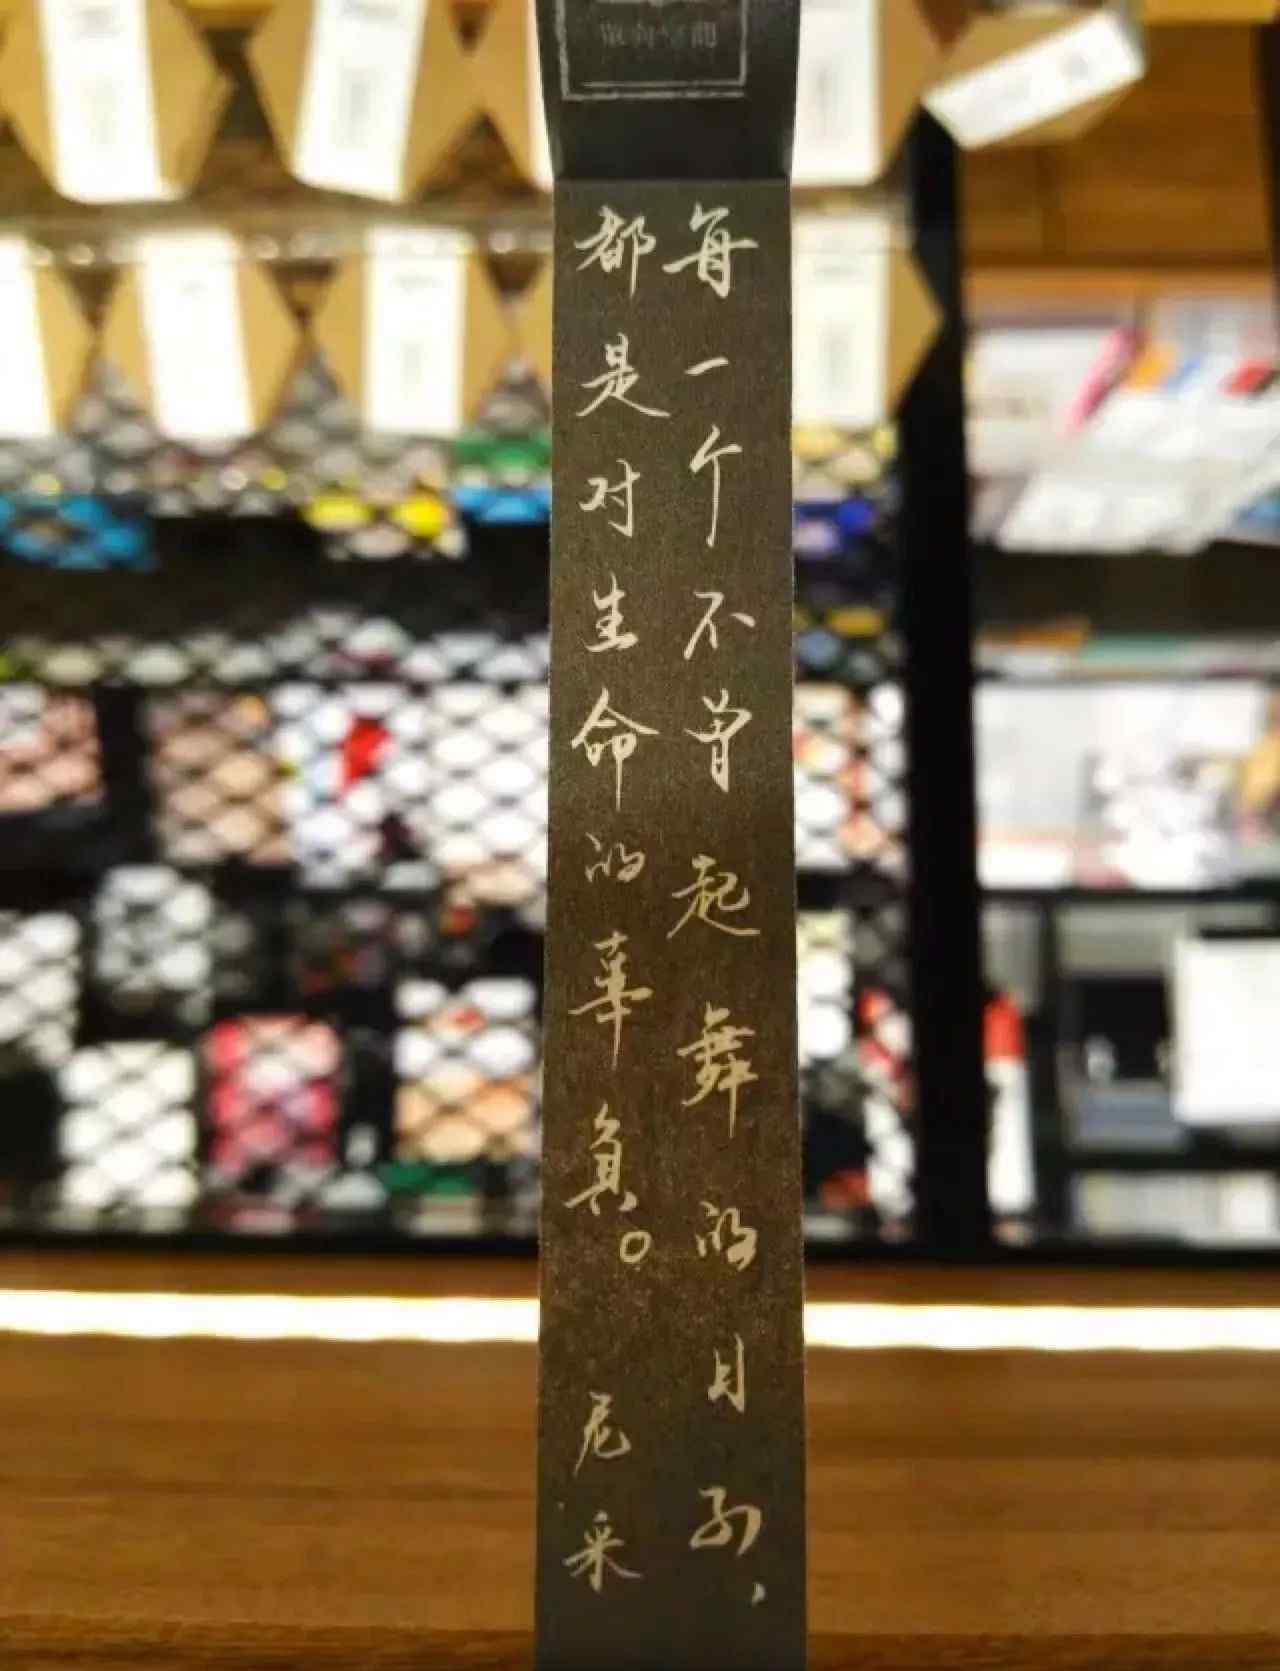 單向空間
每一个不曾起舞的日子，
都是对生命的辜负。
尼采